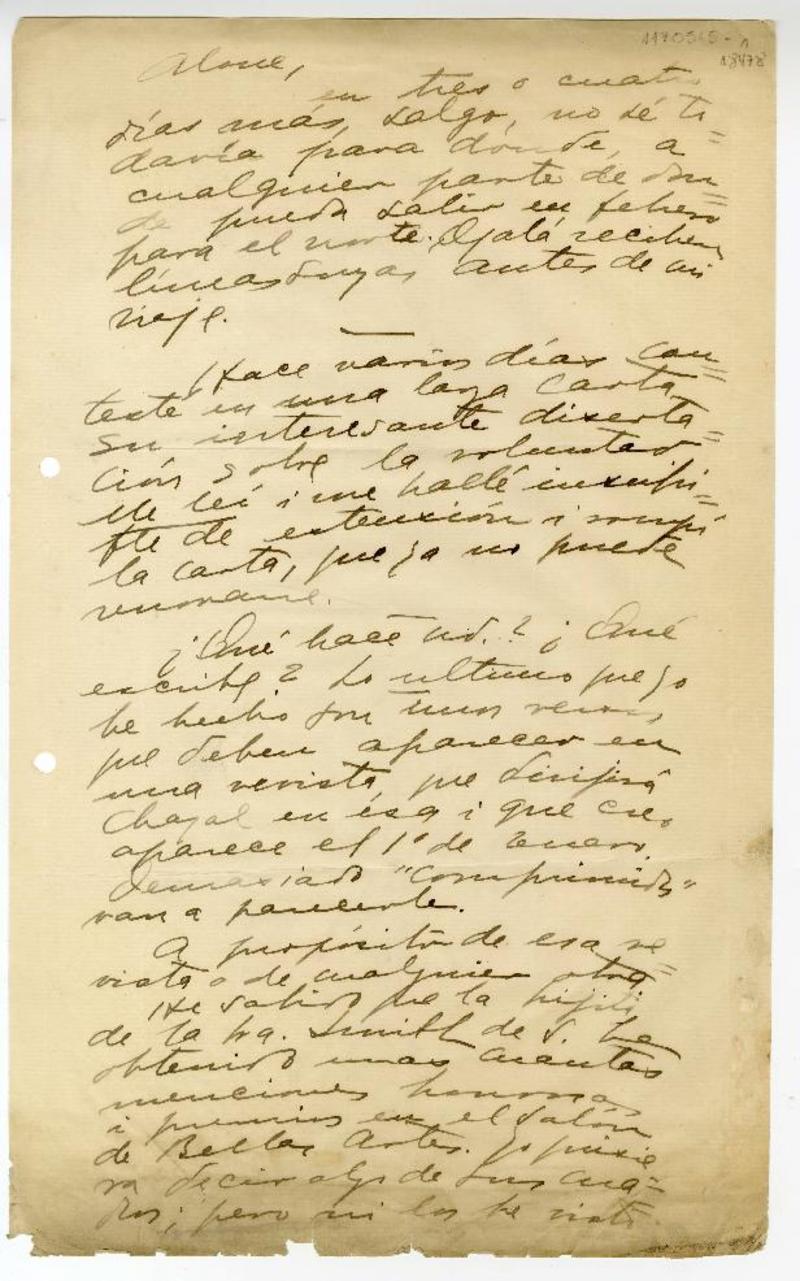 1190515-
18478
Alone,
en tres o cuatro
días más, salgo, no sé to=
davía para dónde, a
cualquier parte de don=
de pueda salir en febrero
para el norte. Ojalá recibiera
líneas suyas antes de mi
viaje.
Hace varios días con=
testé en una larga carta
su interesante diserta=
ción sobre la voluntad
Me leí i me hallé insufri=
ble de extensión i rompí
la carta, que ya no puede
renovarse.
¿Qué hace ud.? ¿Qué
escribe? Lo ultimo que yo
he hecho son unos versos,
que deben aparecer en
una revista, que dirijirá
Chagal en ésa i que creo
aparece el 1º de Enero.
Demasiado "comprimidos"
van a parecerle.
A propósito de esa re=
vista o de cualquier otra
He sabido que la hijita
de la Sra. Smith de S. ha
obtenido unas cuantas
menciones honrosas
i premios en el salón
de Bellas Artes. Yo quisie
ra decir algo de sus cua=
dros; pero ni los he visto